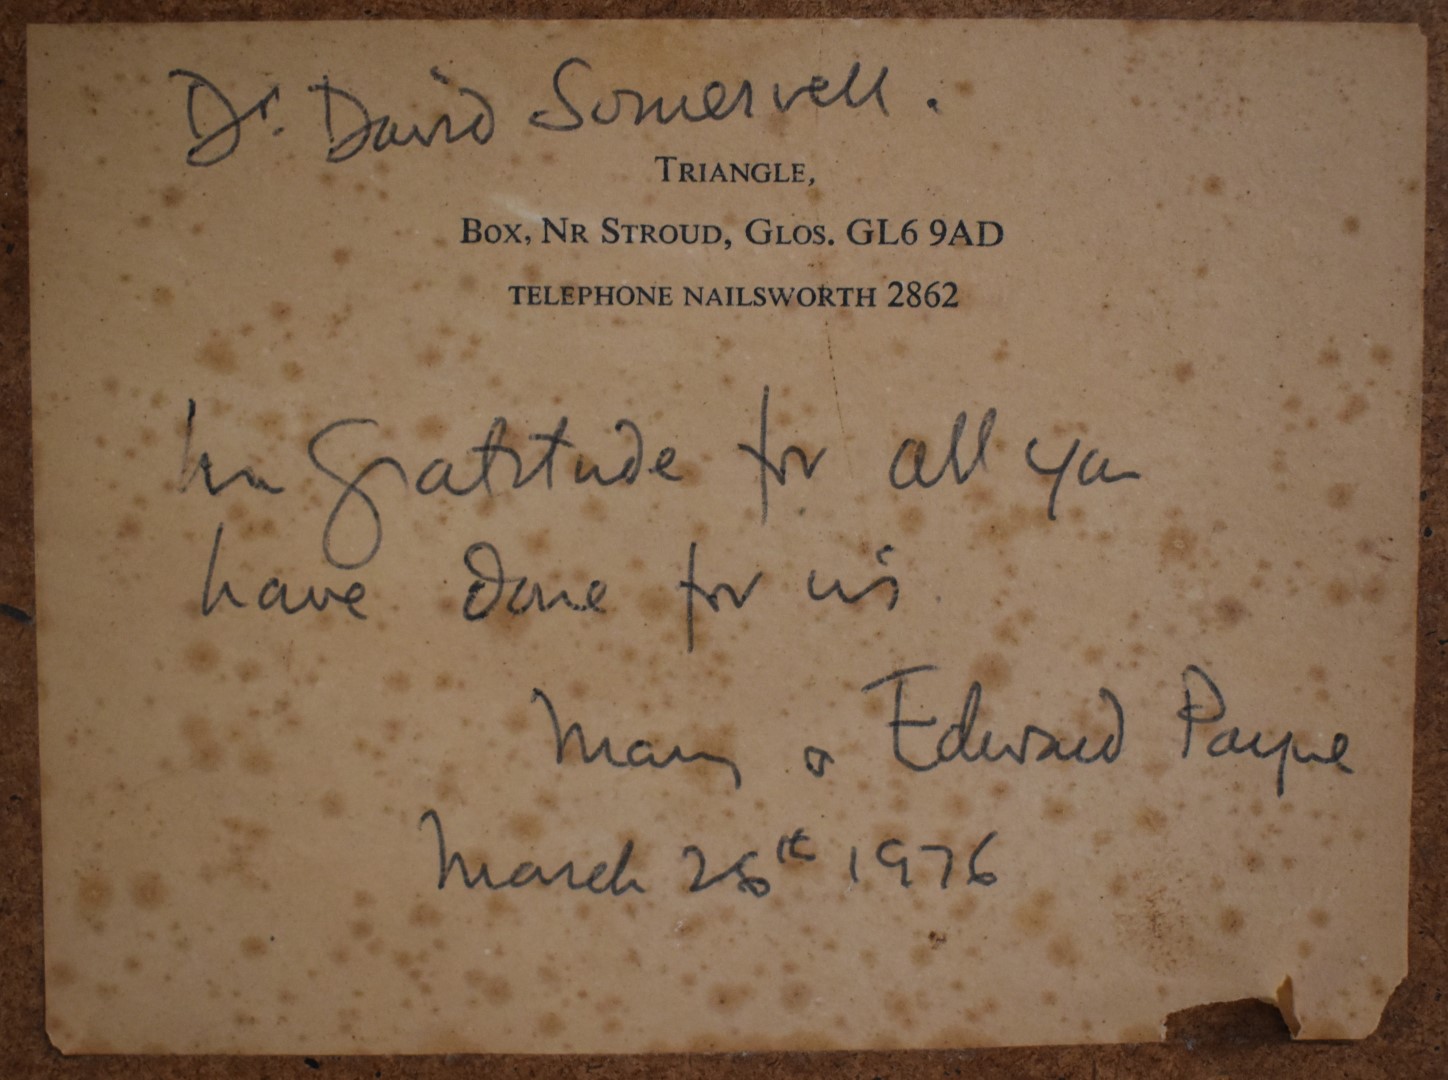 Dr. David Somervell.
TRIANGLE,
BOX, NR STROUD, GLOS. GL6 9AD
TELEPHONE NAILSWORTH 2862
In gratitude for all you
have done for us
Mary & Edward Payne
March 28th 1976